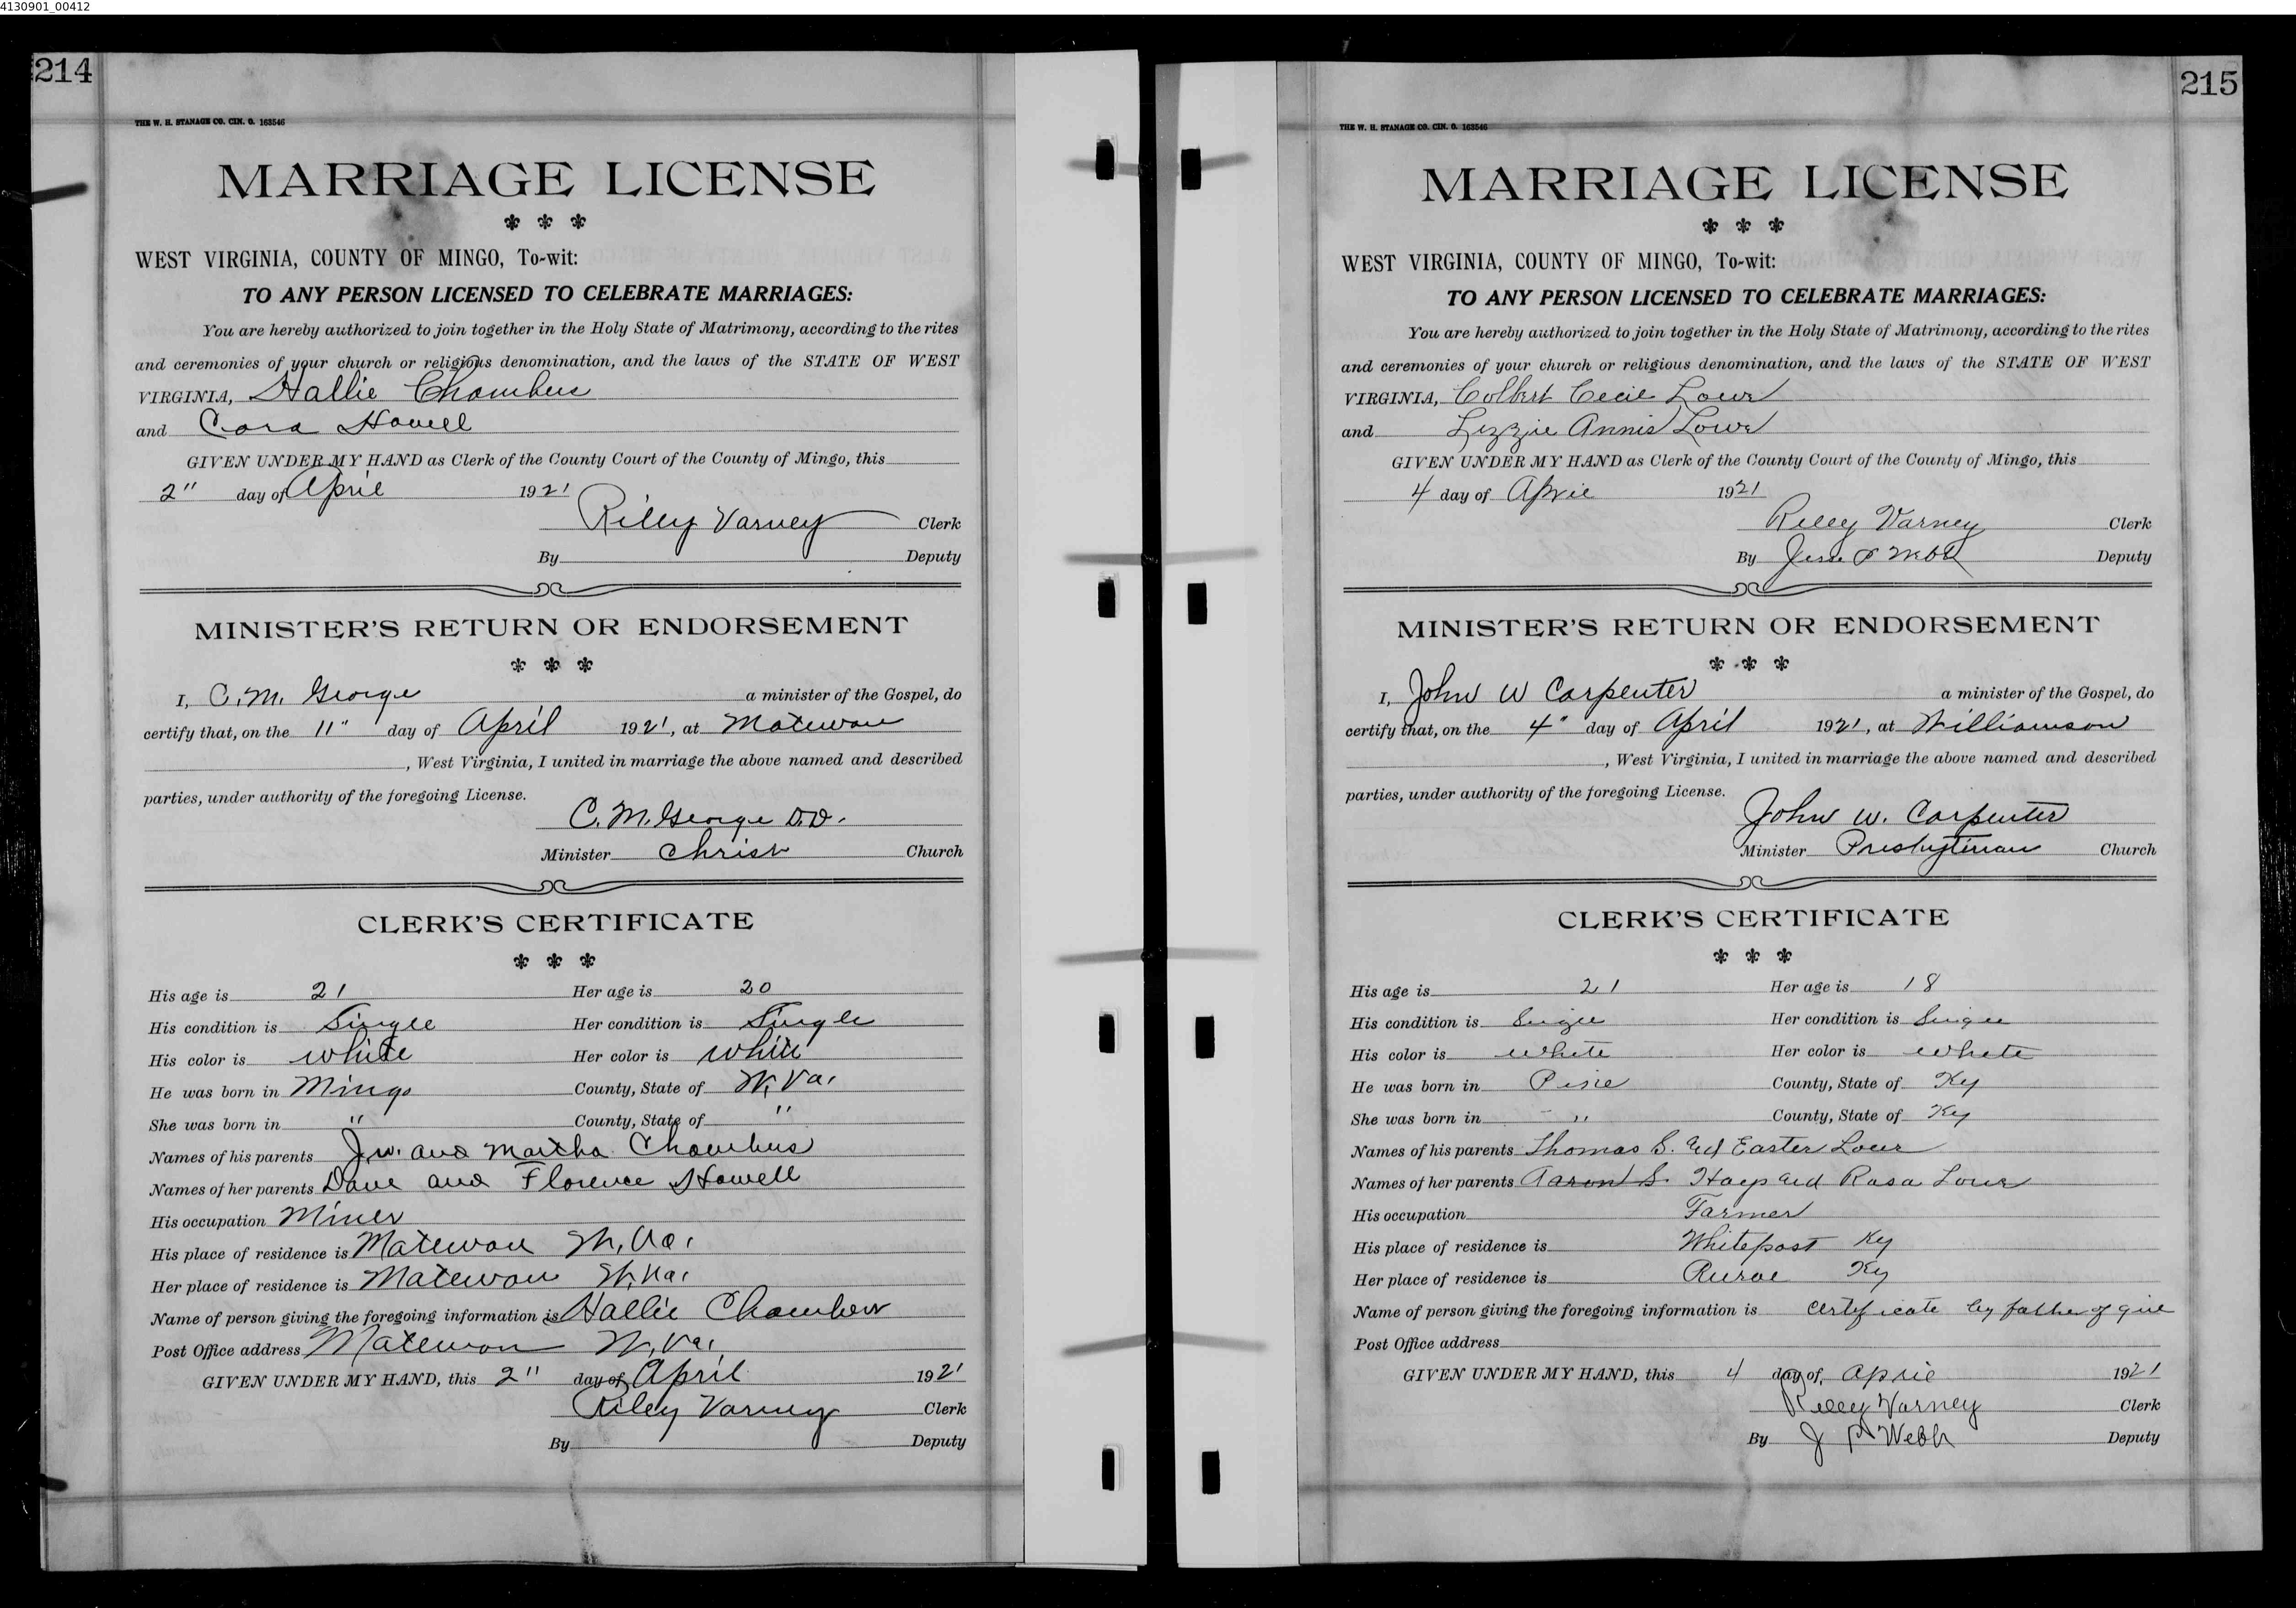 4130901_00412
214
THE W. H. STANAGE CO. CIN. O. 163546
MARRIAGE LICENSE
WEST VIRGINIA, COUNTY OF MINGO, To-wit:
TO ANY PERSON LICENSED TO CELEBRATE MARRIAGES:
You are hereby authorized to join together in the Holy State of Matrimony, according to the rites
and ceremonies of your church or religious denomination, and the laws of the STATE OF WEST
VIRGINIA, Hallie Chambers
and Cora Howell
GIVEN UNDER MY HAND as Clerk of the County Court of the County of Mingo, this
2" day of April 1921
Riley Varney Clerk
By Deputy
MINISTER'S RETURN OR ENDORSEMENT
I, C. M. George a minister of the Gospel, do
certify that, on the 11" day of April 1921, at Matewan
, West Virginia, I united in marriage the above named and described
parties, under authority of the foregoing License.
C. M. George D.D.
Minister Christ Church
CLERK'S CERTIFICATE
His age is 21 Her age is 20
His condition is Single Her condition is Single
His color is white Her color is white
He was born in Mingo County, State of W. Va.
She was born in " County, State of "
Names of his parents J. W. and Martha Chambers
Names of her parents Dave and Florence Howell
His occupation Miner
His place of residence is Matewan W. Va.
Her place of residence is Matewan W. Va.
Name of person giving the foregoing information is Hallie Chambers
Post Office address Matewan W. Va.
GIVEN UNDER MY HAND, this 2" day of April 1921
Riley Varney Clerk
By Deputy
215
THE W. H. STANAGE CO. CIN. O. 163546
MARRIAGE LICENSE
WEST VIRGINIA, COUNTY OF MINGO, To-wit:
TO ANY PERSON LICENSED TO CELEBRATE MARRIAGES:
You are hereby authorized to join together in the Holy State of Matrimony, according to the rites
and ceremonies of your church or religious denomination, and the laws of the STATE OF WEST
VIRGINIA, Colbert Cecil Lowe
and Lizzie Annis Lowe
GIVEN UNDER MY HAND as Clerk of the County Court of the County of Mingo, this
4 day of April 1921
Riley Varney Clerk
By Jesse P Webb Deputy
MINISTER'S RETURN OR ENDORSEMENT
I, John W Carpenter a minister of the Gospel, do
certify that, on the 4" day of April 1921, at Williamson
, West Virginia, I united in marriage the above named and described
parties, under authority of the foregoing License.
John W. Carpenter
Minister Presbyterian Church
CLERK'S CERTIFICATE
His age is 21 Her age is 18
His condition is Single Her condition is Single
His color is White Her color is White
He was born in Pike County, State of Ky
She was born in " County, State of Ky
Names of his parents Thomas S. and Easter Lowe
Names of her parents Aaron S. and Rosa Lowe
His occupation Farmer
His place of residence is Whitepost Ky
Her place of residence is Ky
Name of person giving the foregoing information is Certificate by father of girl
Post Office address
GIVEN UNDER MY HAND, this 4 day of April 1921
Riley Varney Clerk
By J P Webb Deputy